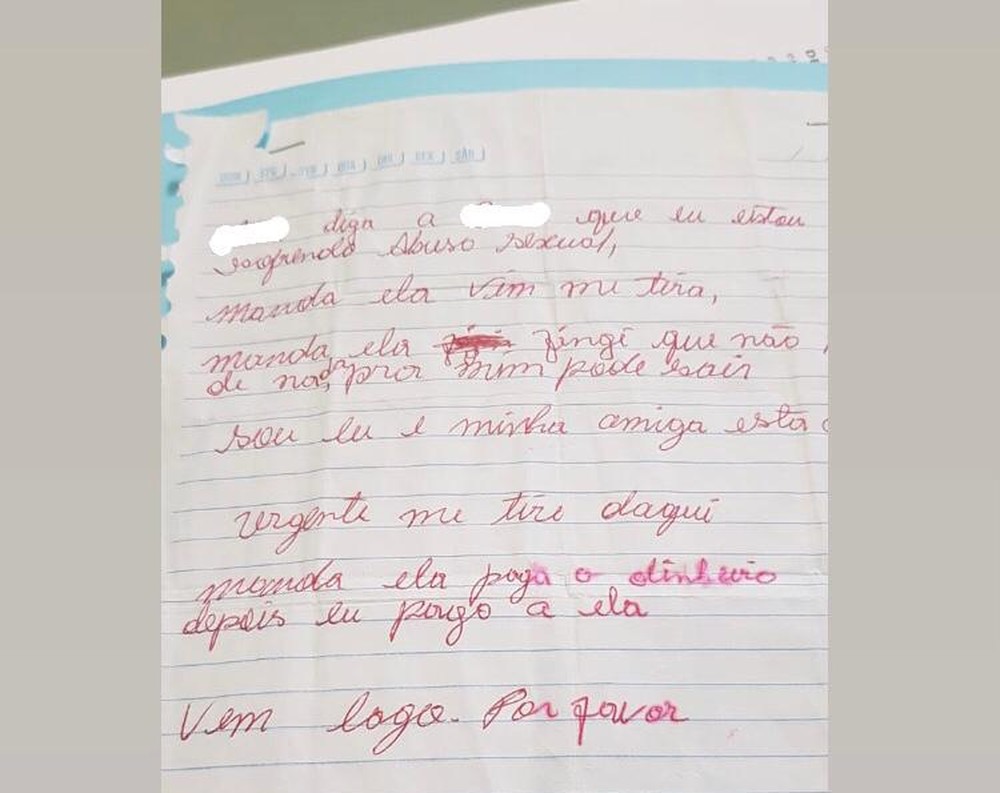 diga a que eu estou
sofrendo Abuso sexual,
manda ela vim me tira,
manda ela fingi que não
de nada pra mim pode sair
sou eu e minha amiga esta
urgente me tire daqui
manda ela paga o dinheiro
depois eu pango a ela
Vem logo. Por favor